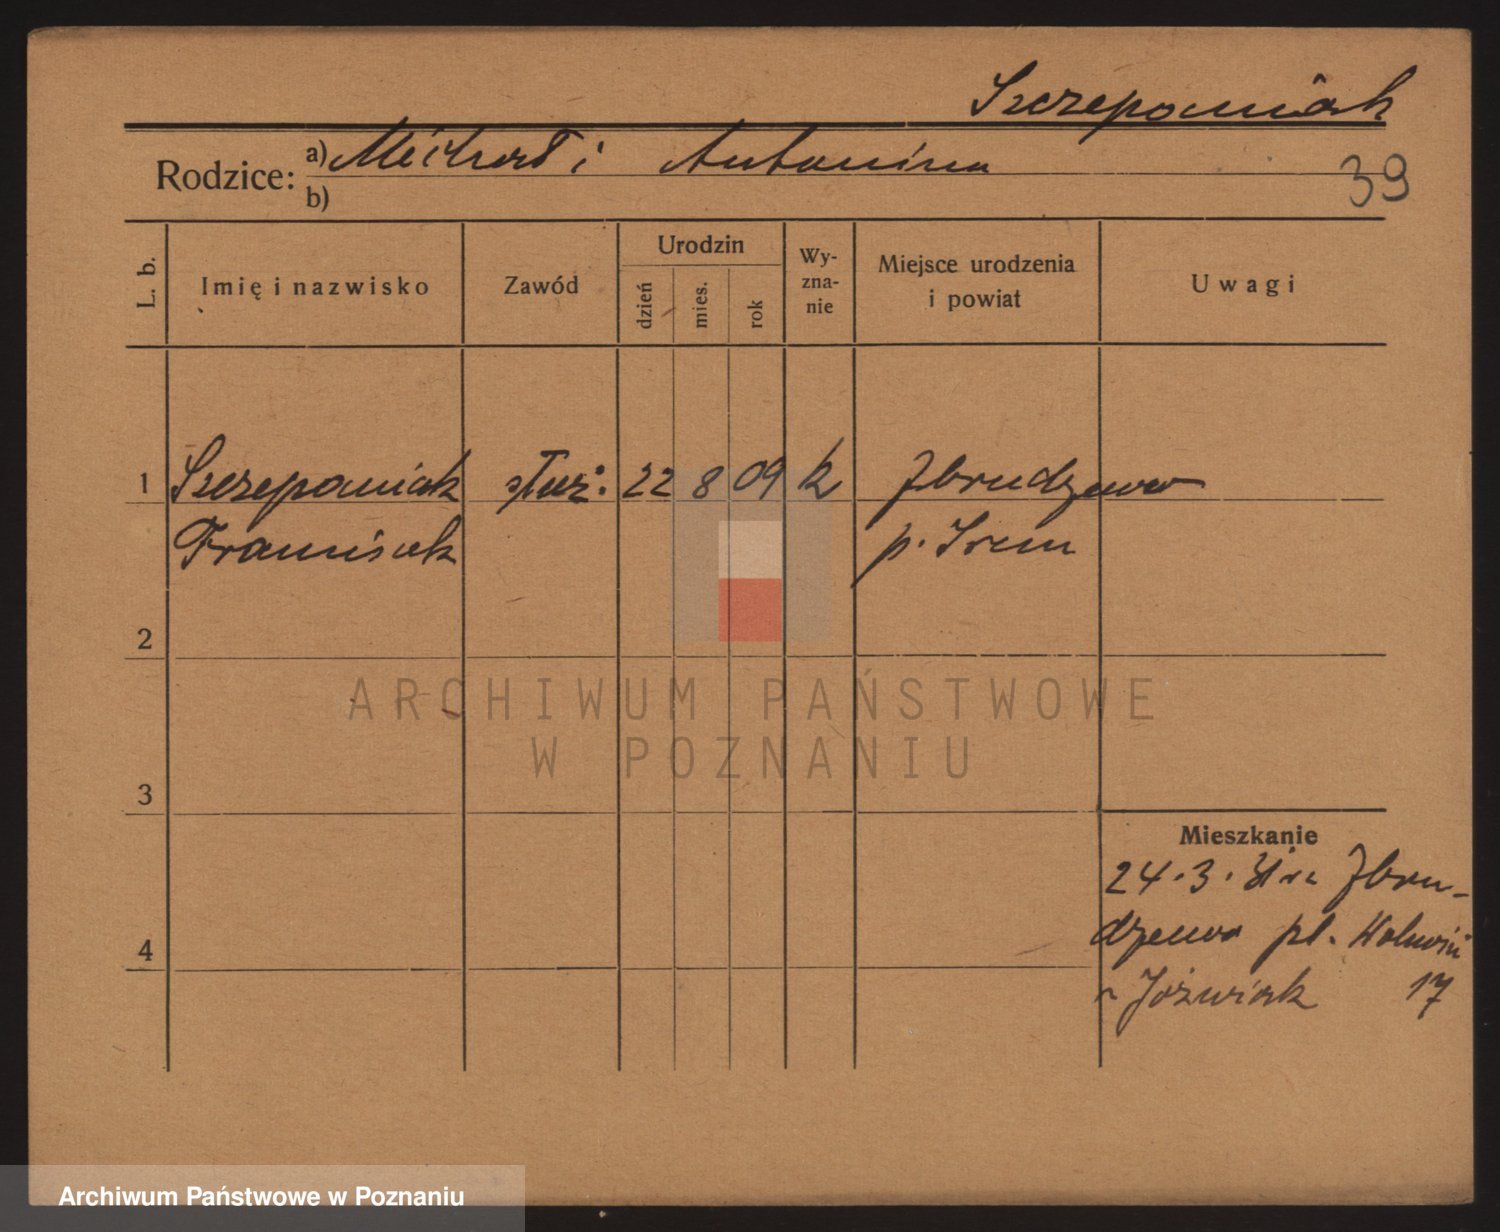 Szczepaniak
Rodzice: a) Michał i Antonina
b)
39
L. b.
Imię i nazwisko
Zawód
Urodzin
dzień
mies.
rok
Wy-
zna-
nie
Miejsce urodzenia
i powiat
Uwagi
1 Szczepaniak służ. 22 8 09 k Zbrudzewo
Franciszek p. Śrem
2
3
4
ARCHIWUM PAŃSTWOWE
W POZNANIU
Mieszkanie
24.3. Zbru-
dzewo pl.
Jóźwiak 17
Archiwum Państwowe w Poznaniu